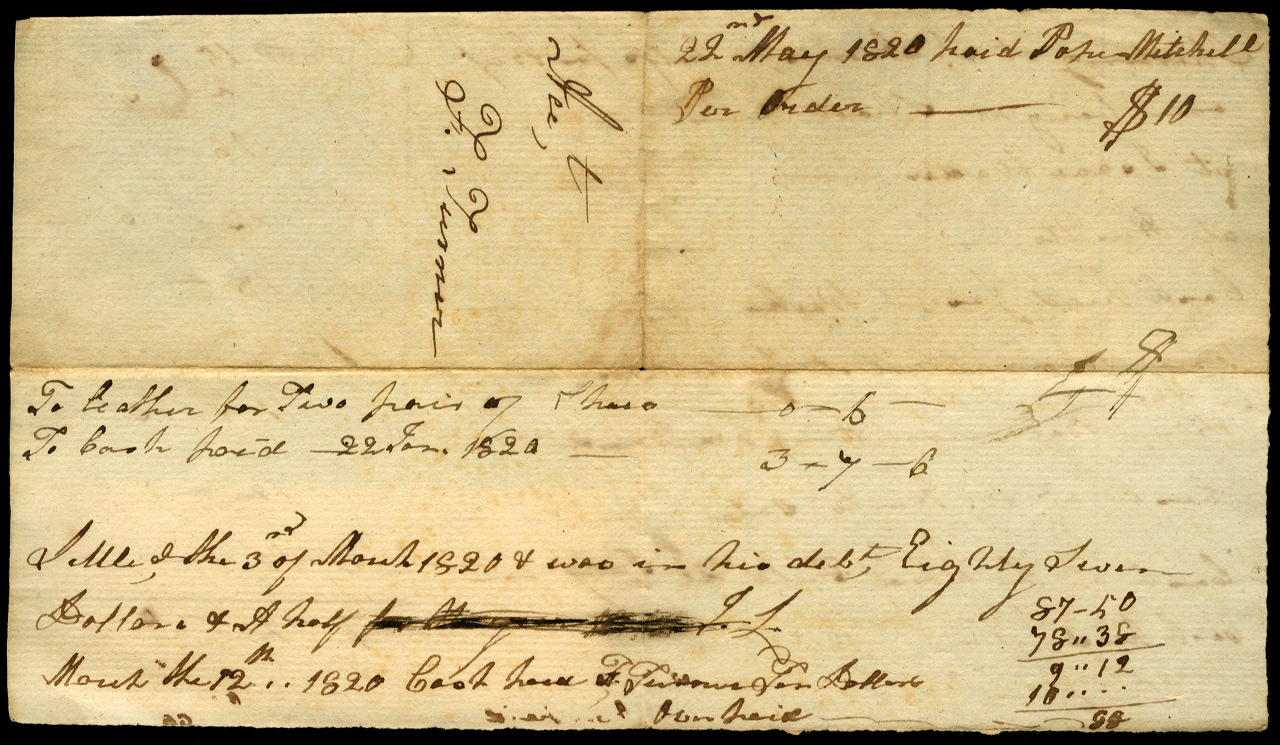 22nd May 1820 paid Pope Mitchell
Per Order — $10
Acct,
F. Turner
To Leather for Two pair of Shoes — 0 - 6 —
To Cash paid 22 Jan. 1820 — 3 - 7 - 6
Settled the 3rd of March 1820 & was in his debt, Eighty Seven
Dollars & A half
March the 12th .. 1820 Cash paid F Turner Ten Dollars
87-50
78"38
9"12
10....
88
Over paid